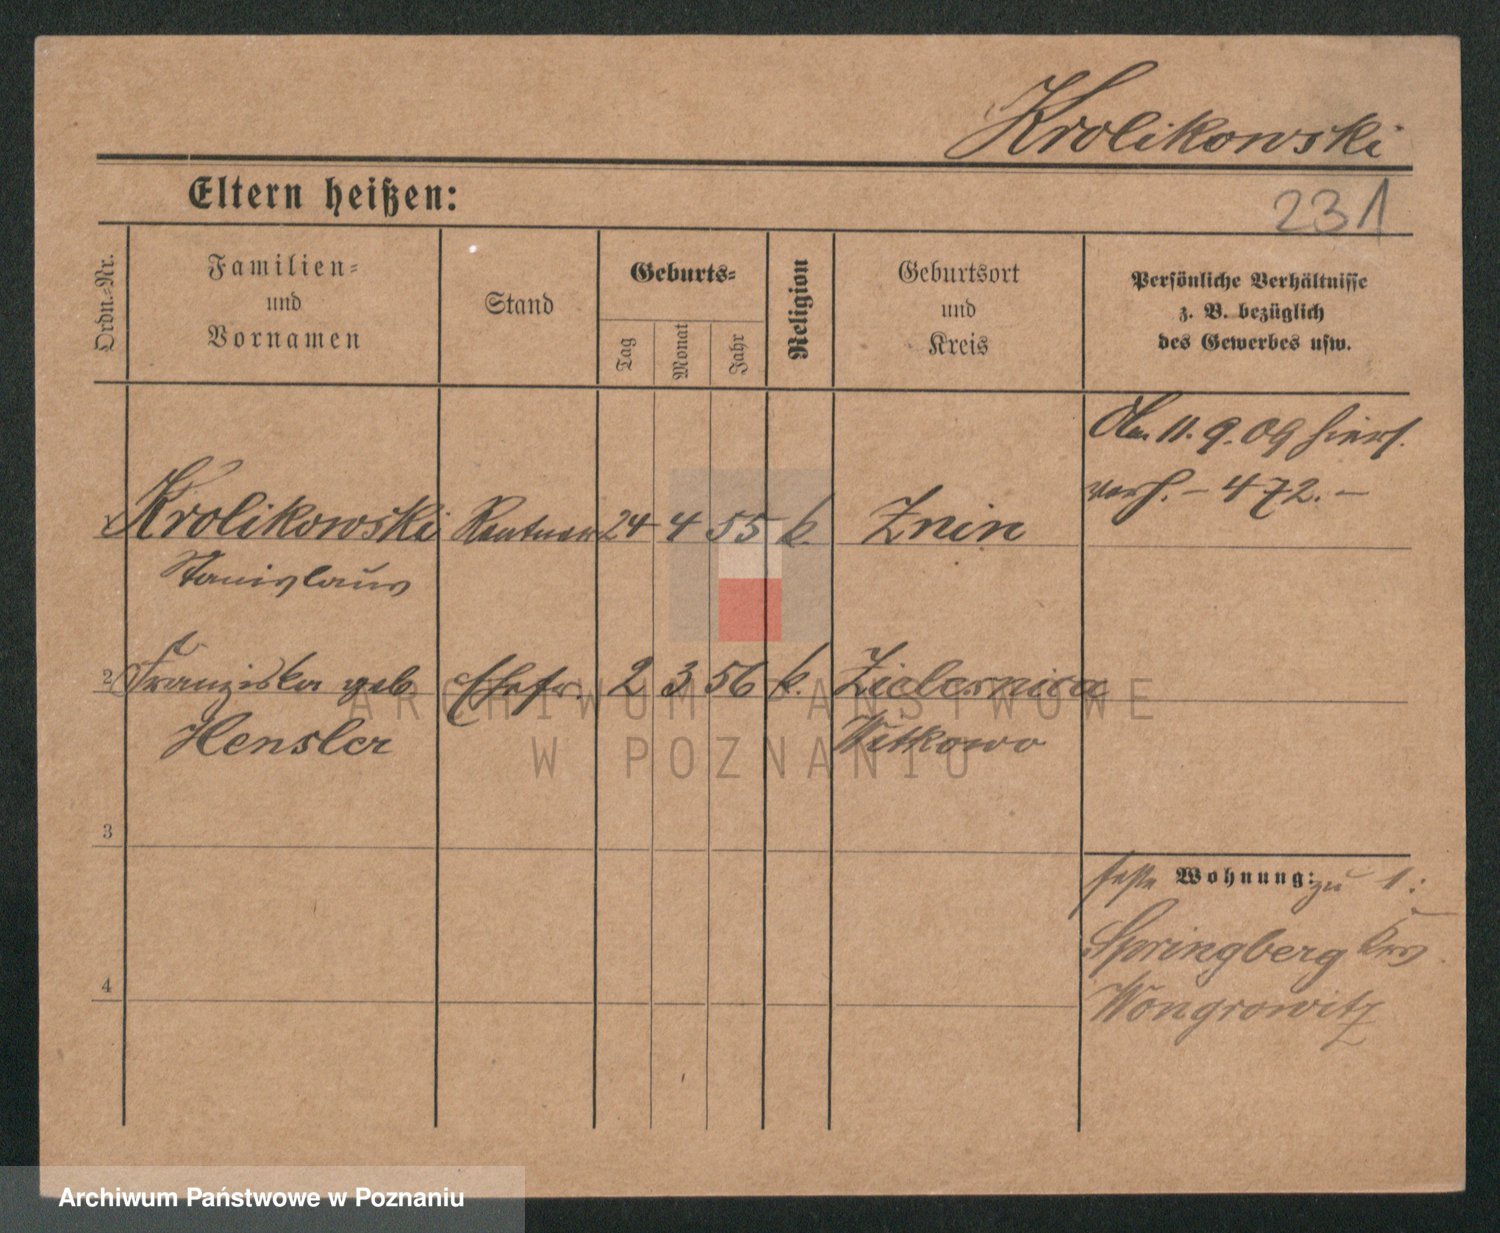 Krolikowski
Eltern heißen:
231
Ordn.-Nr.
Familien-
und
Vornamen
Stand
Geburts-
Tag
Monat
Jahr
Religion
Geburtsort
und
Kreis
Persönliche Verhältnisse
z. B. bezüglich
des Gewerbes usw.
11.9.09
– 472. –
1 Krolikowski Rentner 24 4 55 k. Znin
Stanislaus
2 Franziska geb Ehefr. 2 3 56 k.
Hensler Witkowo
3
feste Wohnung: zu 1:
Springberg Krs
Wongrowitz
4
ARCHIWUM PAŃSTWOWE
W POZNANIU
Archiwum Państwowe w Poznaniu